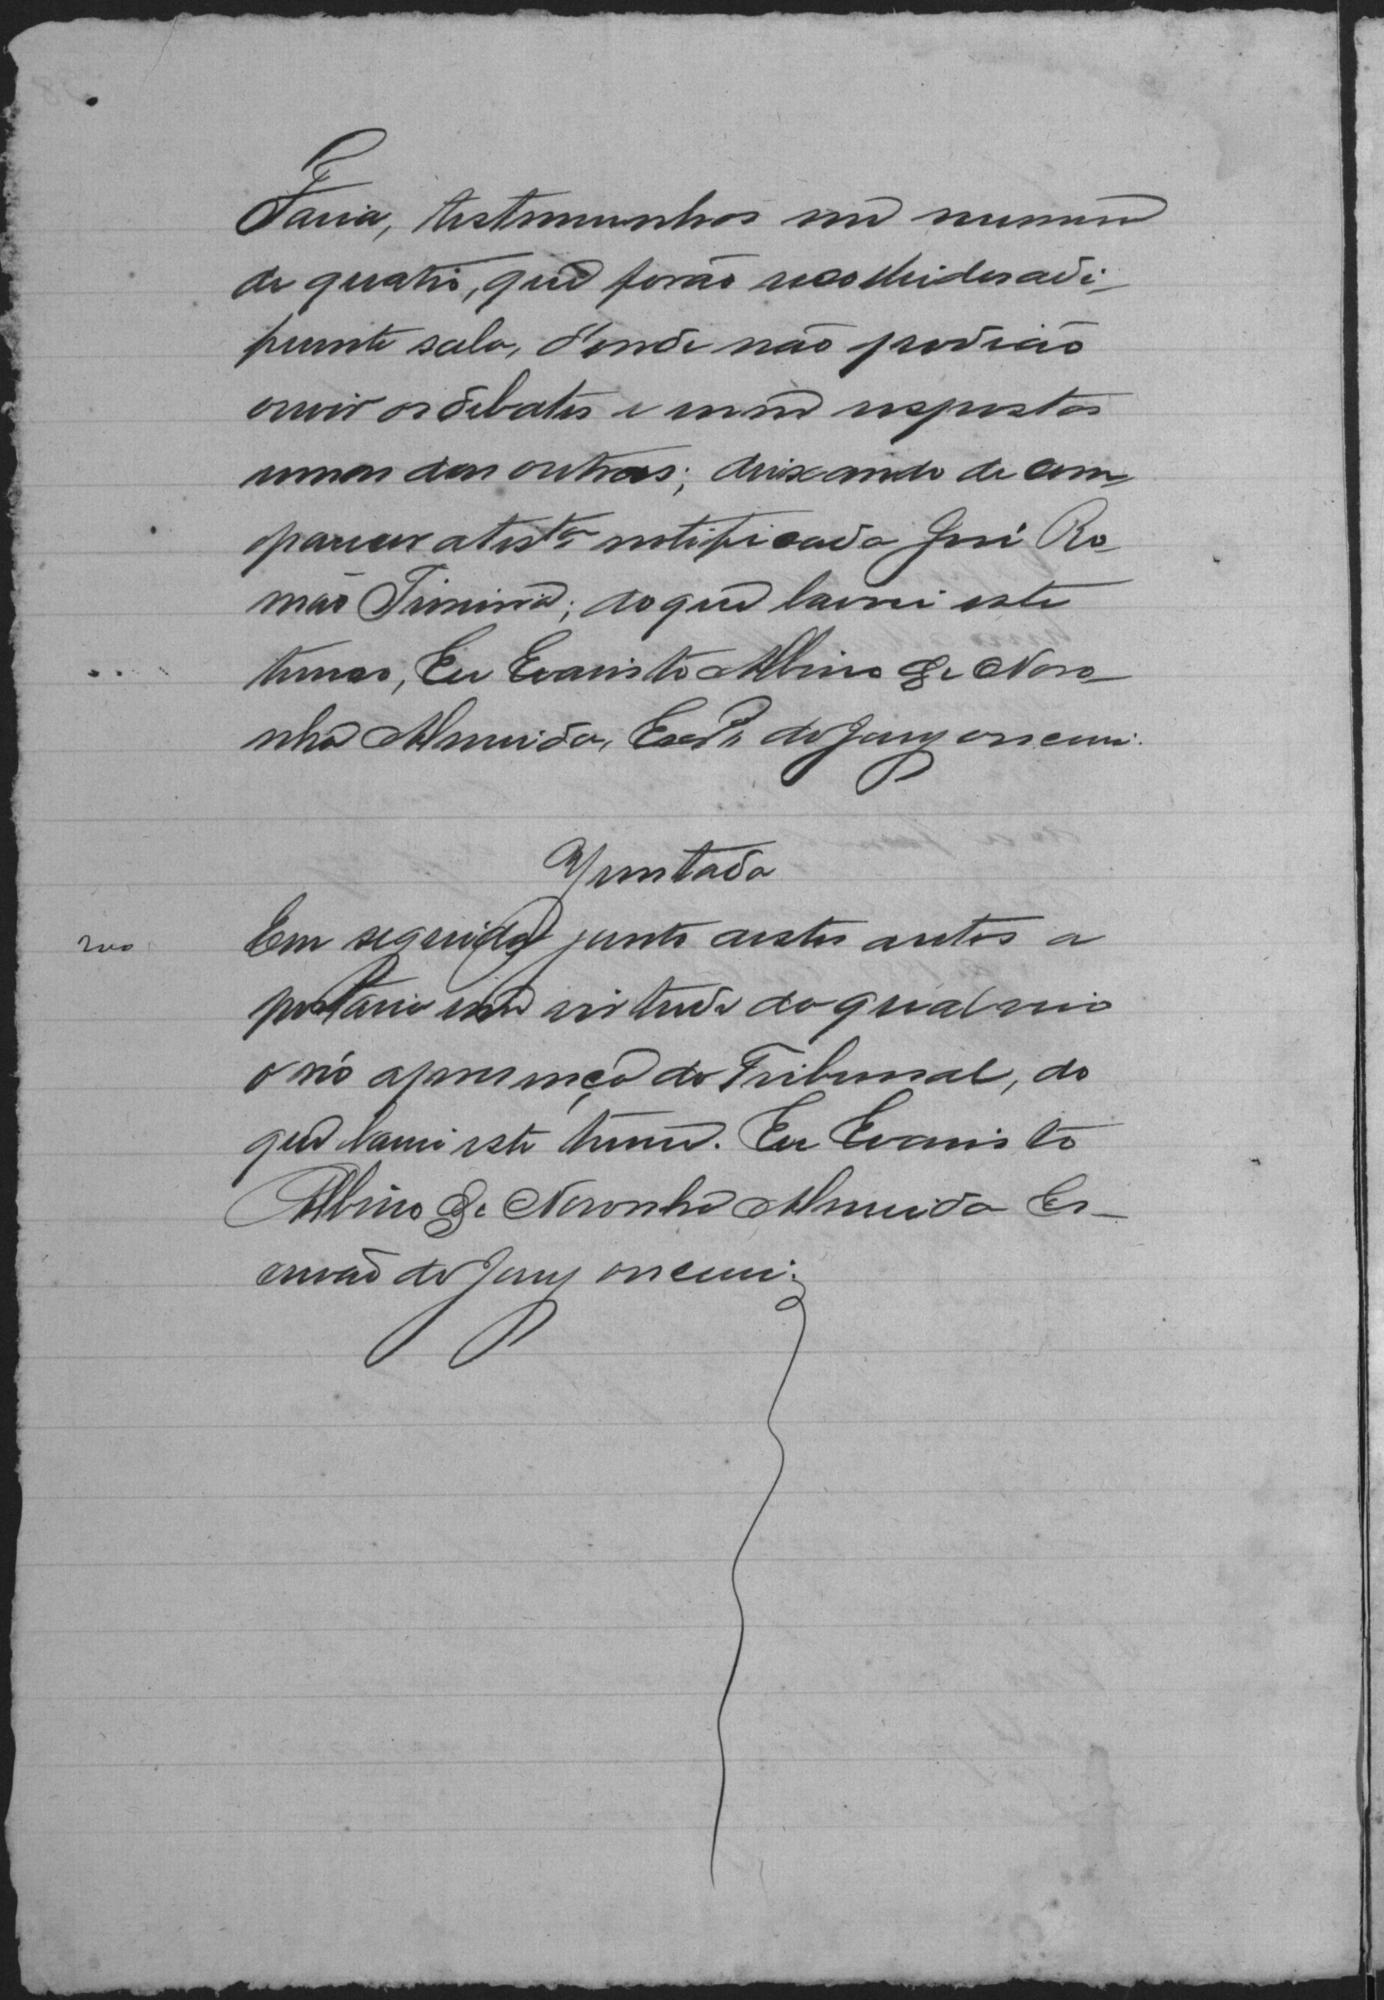 Faria, testemunhas em numero
de quatro, que forão recolhidas a di-
ferente sala, d'onde não podião
ouvir os debates e nem respostas
umas das outras; deixando de com-
parecer a test.ª notificada José Ro-
mão; do que lavrei este
termo, Eu Evaristo Albino de Noro-
nha Almeida, Escr.m do Jury o escrevi.
Juntada
200
Em seguida junto a estes autos a
portaria em virtude da qual veio
o réo a presença do Tribunal, do
que lavrei este termo. Eu Evaristo
Albino de Noronha Almeida Es-
crivão do Jury o escrevi.